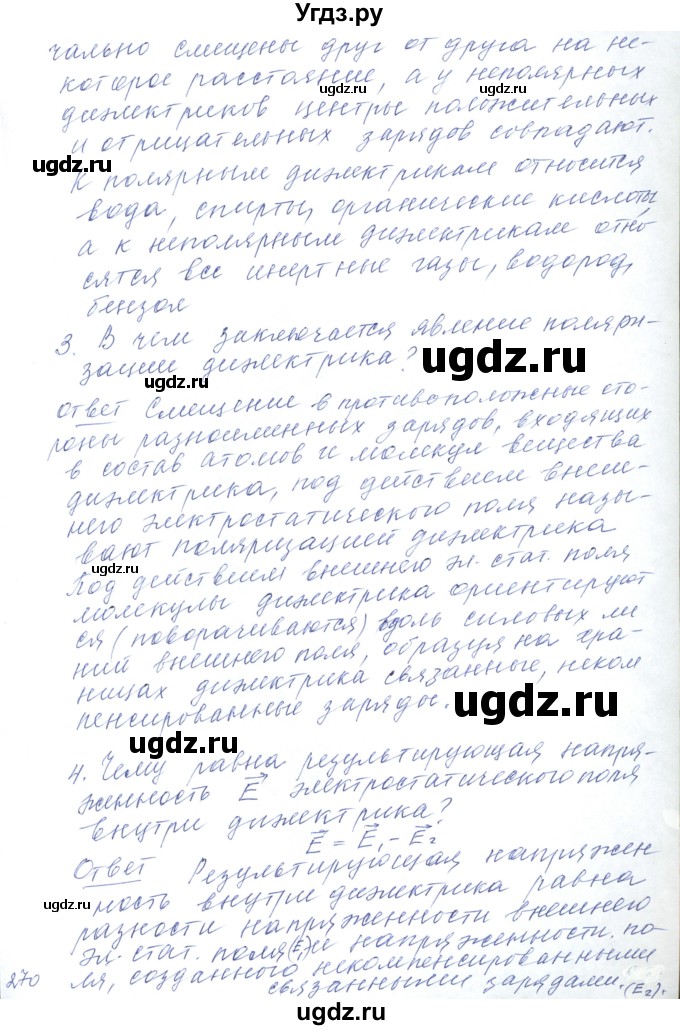 Угдз.ру
чально смещены друг от друга на не-
которое расстояние, а у неполярных
диэлектриков центры положительных
и отрицательных зарядов совпадают.
К полярным диэлектрикам относится
вода, спирты, органические кислоты,
а к неполярным диэлектрикам отно-
сятся все инертные газы, водород,
бензол
3. В чем заключается явление поляри-
зации диэлектрика?
ugdz.ru
Ответ Смещение в противоположные сто-
роны разноименных зарядов, входящих
в состав атомов и молекул вещества
диэлектрика, под действием внеш-
него электростатического поля назы-
вают поляризацией диэлектрика
Под действием внешнего эл. стат. поля
молекулы диэлектрика ориентируют
ся (поворачиваются) вдоль силовых ли
ний внешнего поля, образуя на гра-
ницах диэлектрика связанные, неком
пенсированные заряды.
ugdz.ru
4. Чему равна результирующая напря-
женность E⃗ электростатического поля
внутри диэлектрика?
E⃗ = E⃗₁ - E⃗₂
Ответ Результирующая напряжен
ность внутри диэлектрика равна
разности напряженности внешнего
эл. стат. поля (E₁) и напряженности по-
ля, созданного некомпенсированными
связанными зарядами. (E₂).
270